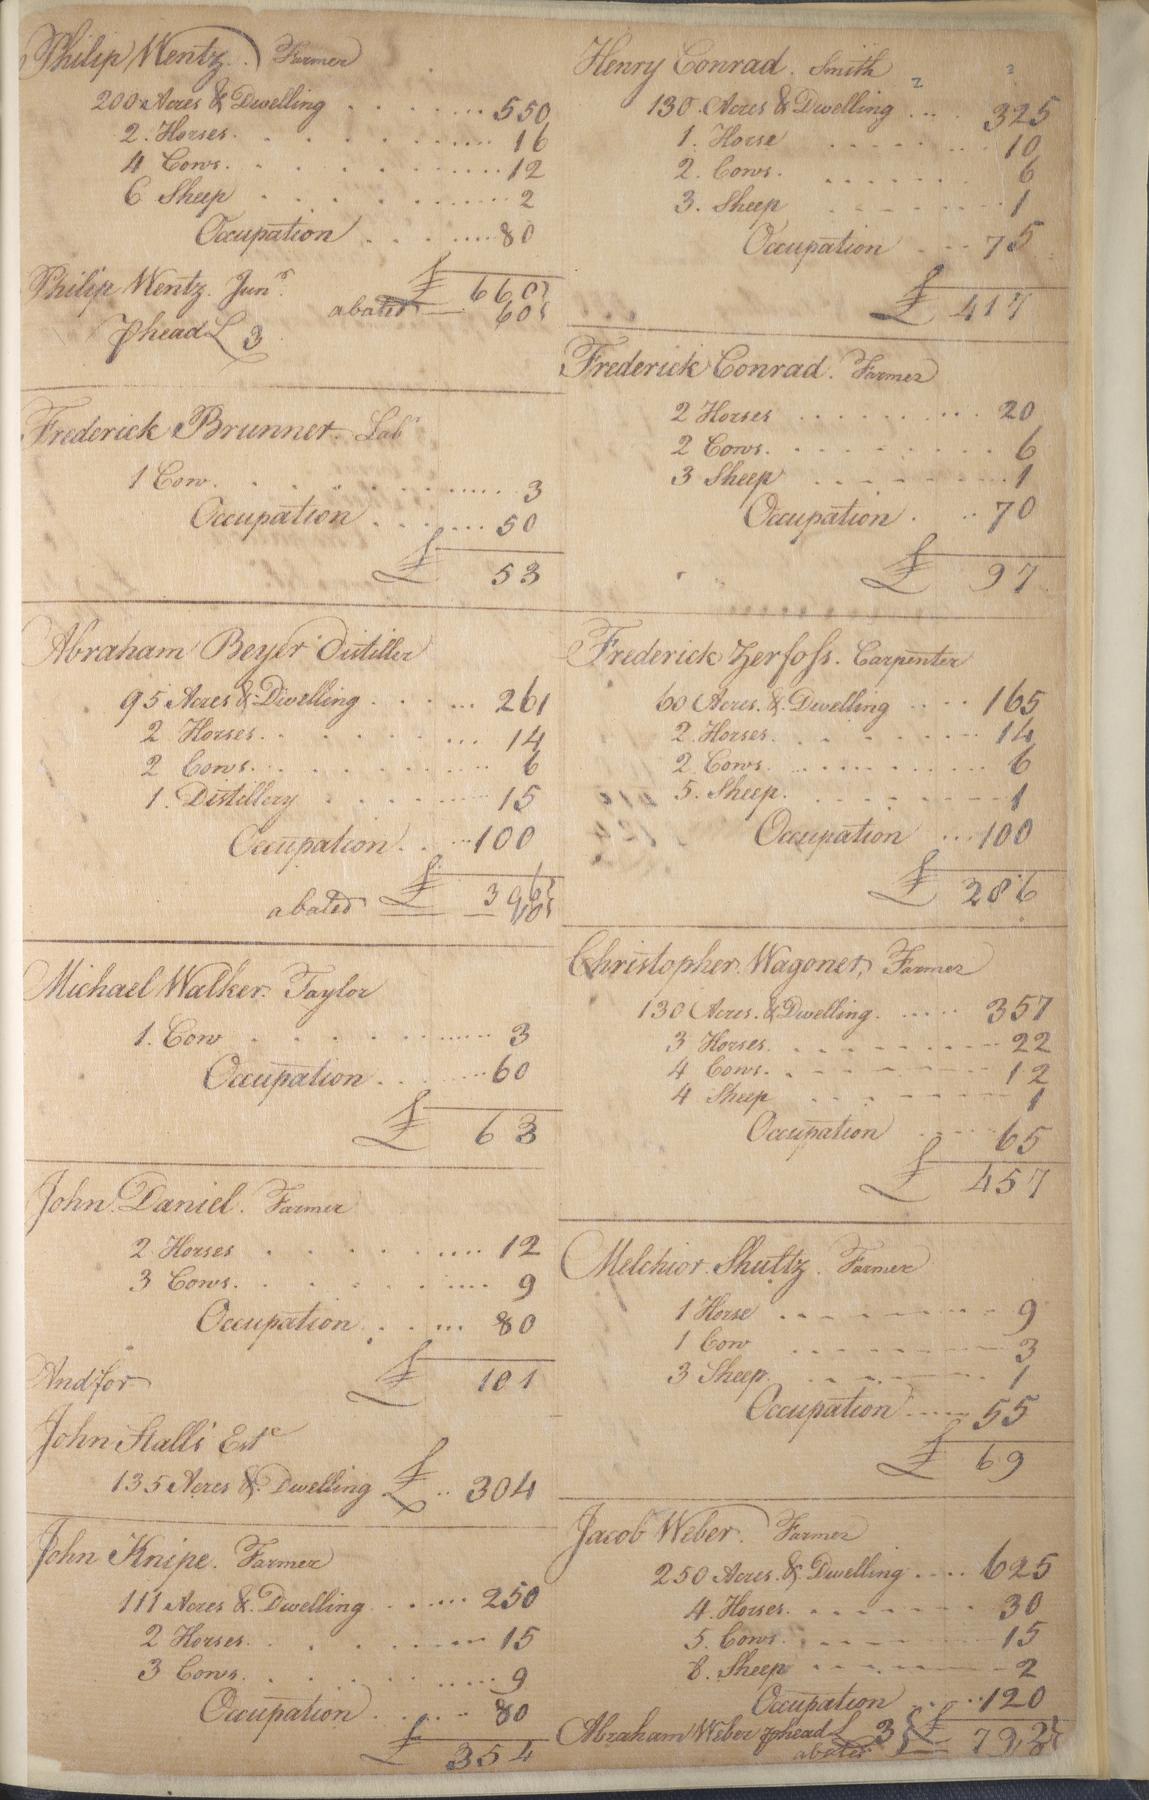 Philip Wentz. Farmer
200 Acres & Dwelling 550
2. Horses. 16
4 Cows. 12
6 Sheep 2
Occupation 80
£ 660
abated 60
Philip Wentz. Junr.
phead £ 3
Frederick Brunner. Labr
1 Cow. 3
Occupation 50
£ 53
Abraham Beyer Distiller
95 Acres & Dwelling 261
2 Horses. 14
2 Cows. 6
1. Distillery 15
Occupation. 100
£ 396
abated
Michael Walker. Taylor
1. Cow 3
Occupation 60
£ 63
John Daniel. Farmer
2 Horses 12
3 Cows. 9
Occupation. 80
£ 101
And for
John Stalls Este
135 Acres & Dwelling £ 304
John Knipe. Farmer
111 Acres & Dwelling 250
2 Horses. 15
3 Cows. 9
Occupation 80
£ 354
Henry Conrad. Smith
130. Acres & Dwelling 325
1. Horse 10
2. Cows. 6
3. Sheep 1
Occupation 75
£ 417
Frederick Conrad. Farmer
2 Horses 20
2 Cows. 6
3 Sheep 1
Occupation. 70
£ 97
Frederick Zerfoss. Carpenter
60 Acres. & Dwelling 165
2. Horses. 14
2. Cows. 6
5. Sheep. 1
Occupation 100
£ 286
Christopher. Wagoner, Farmer
130 Acres. & Dwelling. 357
3 Horses. 22
4 Cows. 12
4 Sheep 1
Occupation 65
£ 457
Melchior. Shultz. Farmer
1 Horse 9
1 Cow 3
3 Sheep. 1
Occupation 55
£ 69
Jacob Weber. Farmer
250 Acres. & Dwelling 625
4. Horses. 30
5. Cows. 15
8. Sheep 2
Occupation 120
Abraham Weber phead £ 3 £ 792
abated